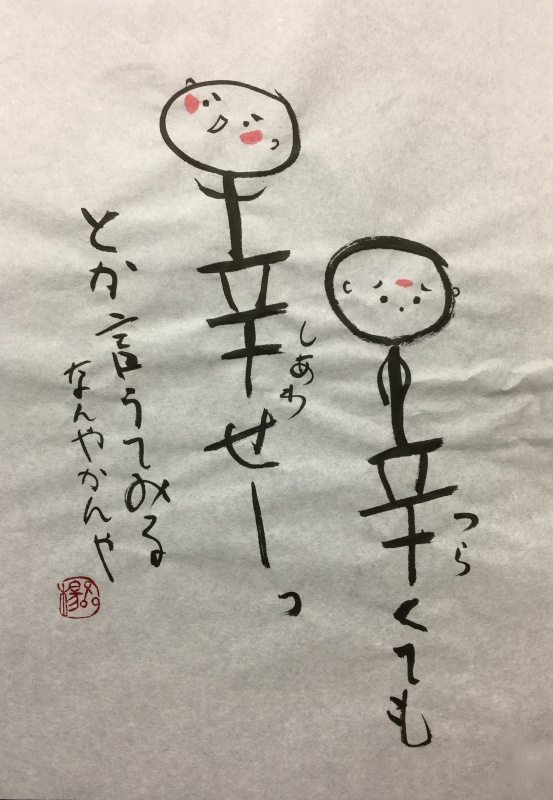 辛くても
つら
幸せーっ
しあわ
とか言うてみる
なんやかんや